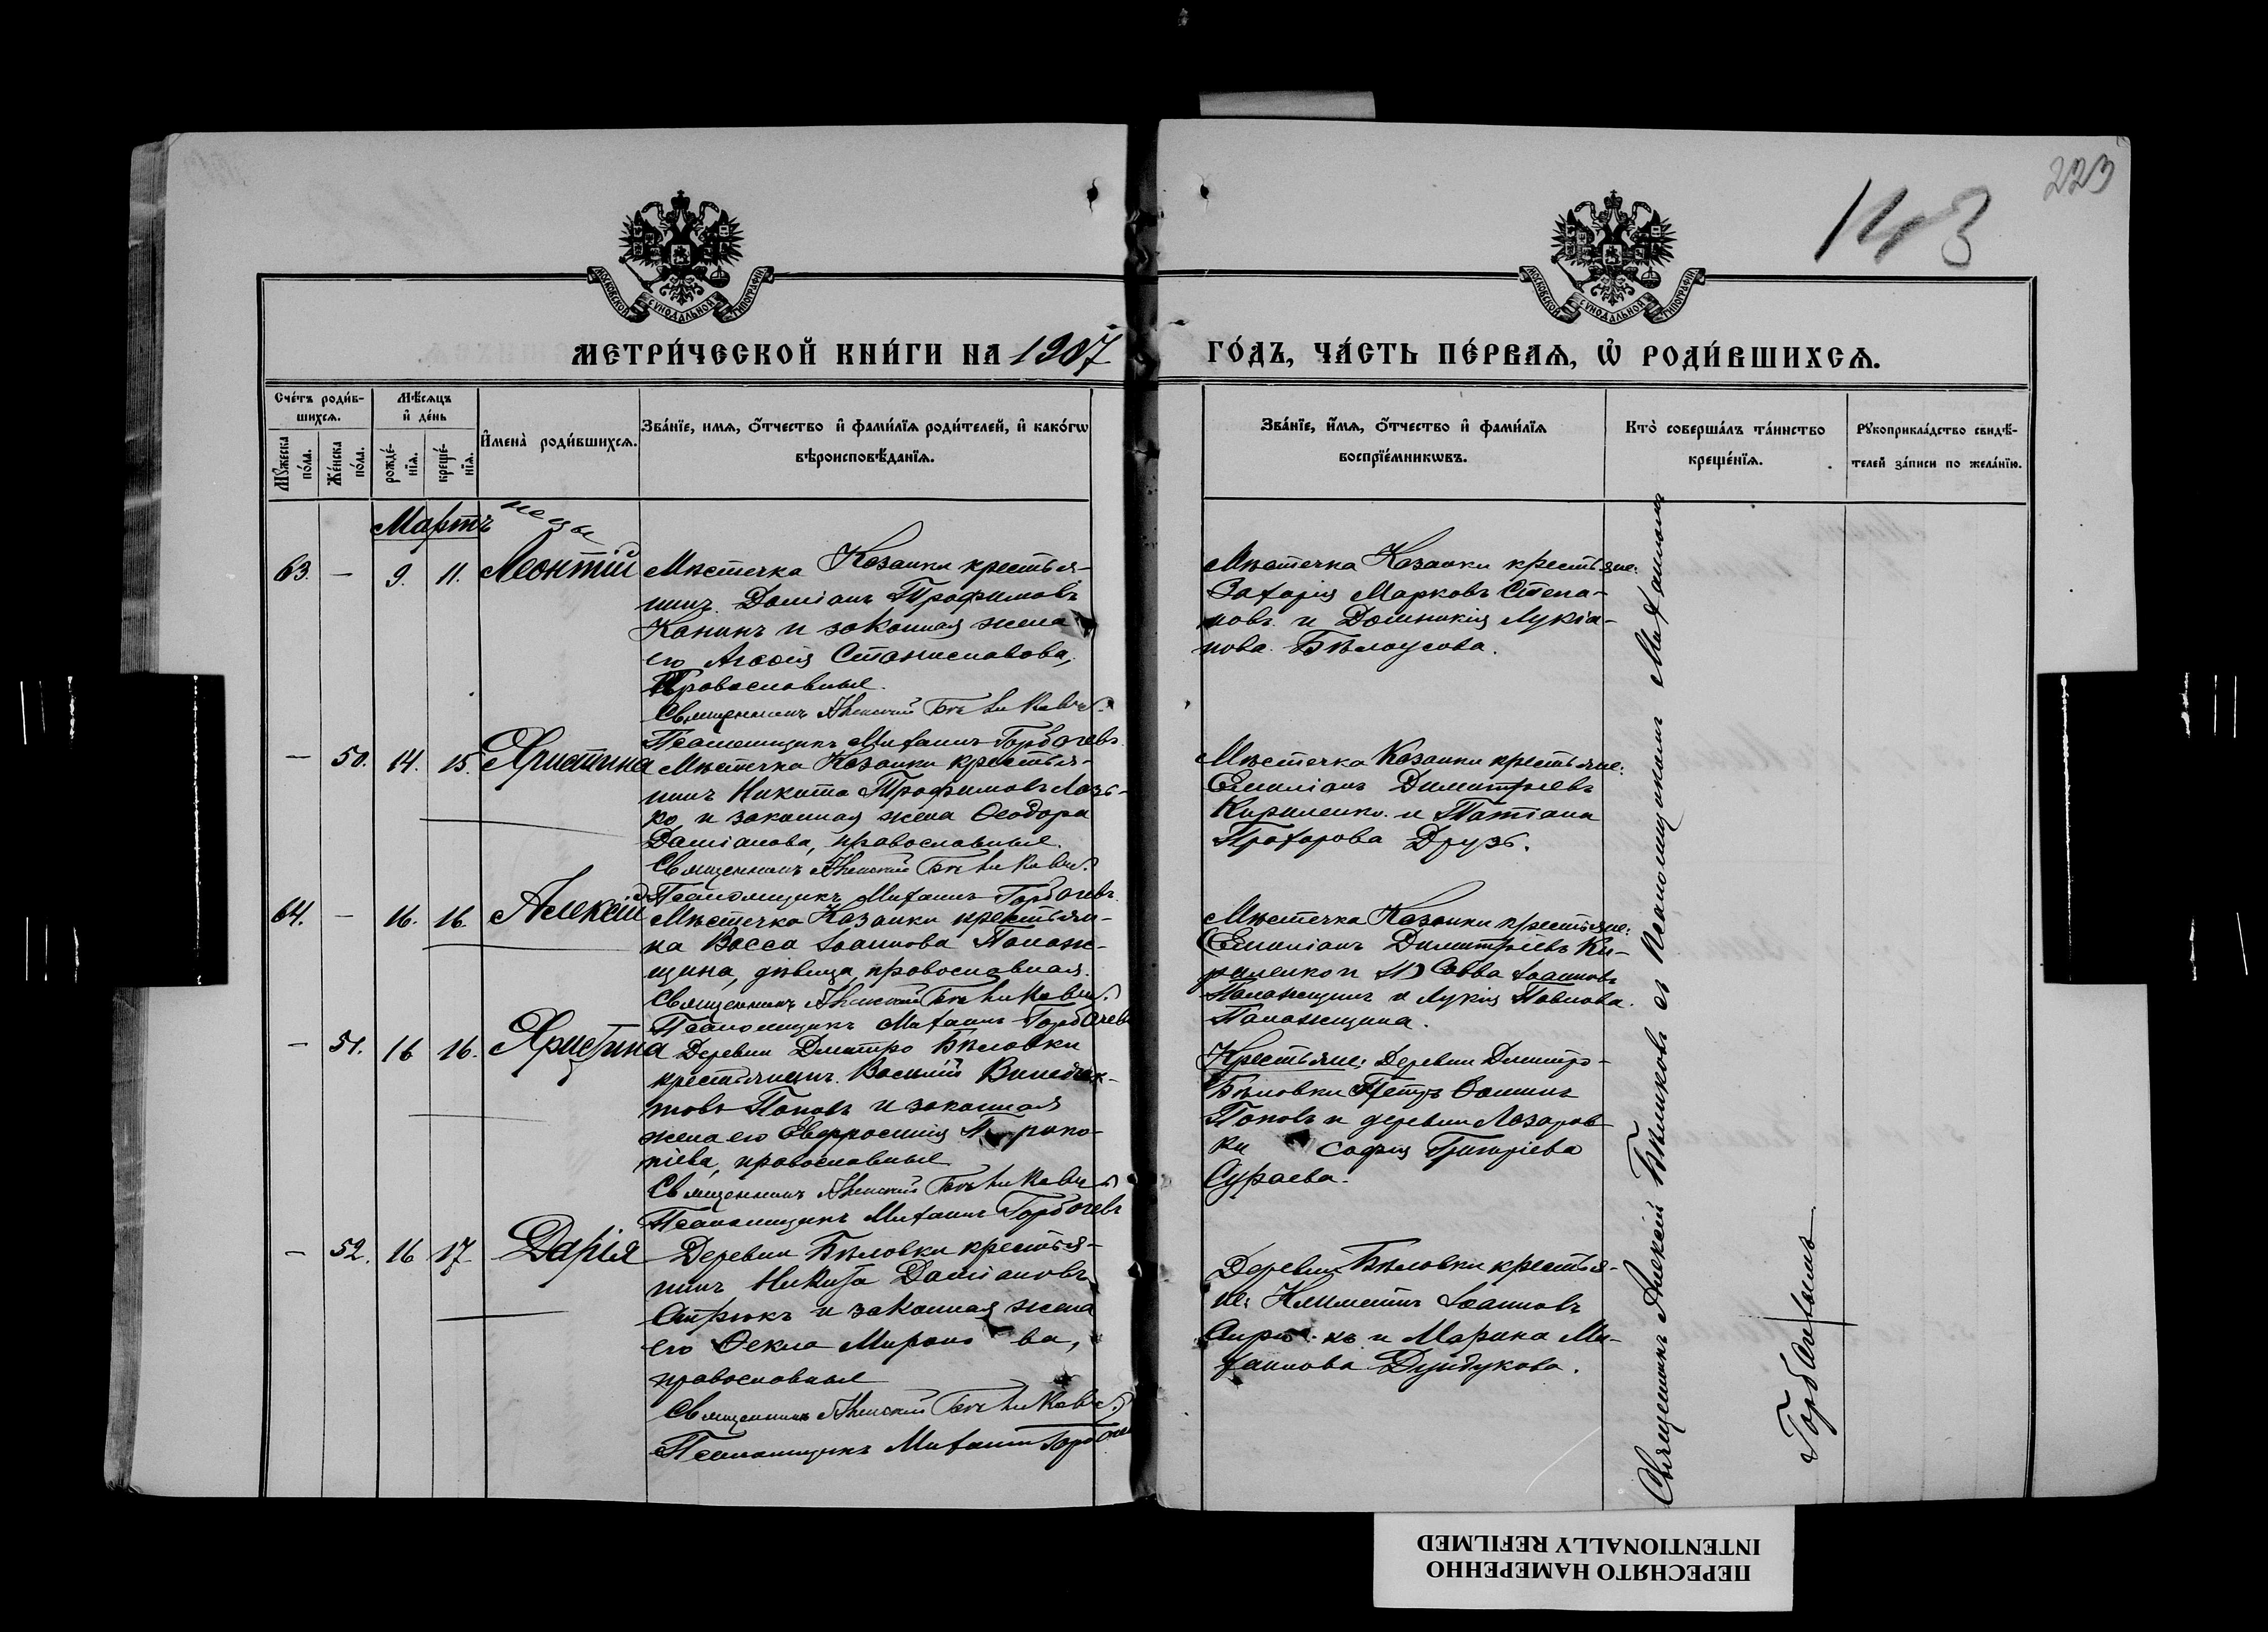 223
143
МОСКОВСКОЙ СУНОДАЛЬНОЙ ТИПОГРАФІИ
МОСКОВСКОЙ СУНОДАЛЬНОЙ ТИПОГРАФІИ
МЕТРИ́ЧЕСКОЙ КНИ́ГИ НА 1907
ГО́ДЪ, ЧА́СТЬ ПЕ́РВАѦ, Ѡ҆ РОДИ́ВШИХСѦ.
Сче́тъ роди́в-
шихсѧ.
Мѣ́сѧцъ
и҆ де́нь
Мꙋ́жеска
по́ла.
Же́нска
по́ла.
рожде́-
нїѧ.
креще́-
нїѧ.
И҆мена̀ роди́вшихсѧ.
Зва́нїе, имѧ, ѻ҆́тчество и҆ фами́лїѧ роди́телей, и҆ како́гѡ
вѣроисповѣ́данїѧ.
Зва́нїе, и҆́мѧ, ѻ҆́тчество и҆ фами́лїѧ
воспрїе́мникѡвъ.
Кто̀ соверша́лъ та́инство
креще́нїѧ.
Рꙋкоприкла́дство свидѣ́-
телей за́писи по жела́нїю.
Мартъ
63. — 9. 11. Леонтій
Мѣстечка Козанки крестья-
нинъ Даміанъ Трофимовъ
Канинъ и законная жена
его Агафія Станиславова,
Православные.
Священникъ Алексій Бѣликовъ
Псаломщикъ Митаилъ Горбачевъ
Мѣстечка Казанки крестьяне:
Захарія Марковъ Степа-
новъ и Домникія Лукіа-
нова Бѣлоусова.
— 50. 14. 15. Христина
Мѣстечка Козанки крестья-
нинъ Никита Трофимовъ Лазь-
ко и законная жена Ѳеодора
Даміанова, православные.
Священникъ Алексій Бѣликовъ
Псаломщикъ Михаилъ Горбачевъ
Мѣстечка Казанки крестьяне:
Емиліанъ Димитріевъ
Кириленко и Татіана
Прохорова Друзь.
64. — 16. 16. Алексій
Мѣстечка Казанки крестьян-
ка Васса Іоаннова Паланж-
щина, дѣвица, православная.
Священникъ Алексій Бѣликовъ
Псаломщикъ Михаилъ Горбачевъ
Мѣстечка Казанки крестьяне:
Емиліанъ Димитріевъ Ки-
риленко и Савва Іоанновъ
Паланжщинъ и Лукія Павлова
Паланжщина.
— 51. 16 16. Христина
Деревни Дмитро Бѣловки
крестьянинъ Василій Винедик-
товъ Поповъ и законная
жена его Евфросинія Проко-
піева, православные
Священникъ Алексій Бѣликовъ
Псаломщикъ Михаилъ Горбачевъ
Крестьяне: Деревни Дмитро-
Бѣловки Петръ Ѳоминъ
Поповъ и деревни Лазаров-
ки Софія Григоріева
Сураева.
— 52. 16 17. Дарія
Деревни Бѣловки крестья-
нинъ Никита Даміановъ
Стрюкъ и законная жена
его Ѳекла Миронова,
православные
Священникъ Алексій Бѣликовъ
Псаломщикъ Михаилъ Горбачевъ
Деревни Бѣловки крестья-
не: Климентъ Іоанновъ
и Марина Ми-
хаилова Дундукова.
Священникъ Алексій Бѣликовъ съ Псаломщикомъ Михаиломъ
Горбачевымъ
ПЕРЕСНЯТО НАМЕРЕННО
INTENTIONALLY REFILMED